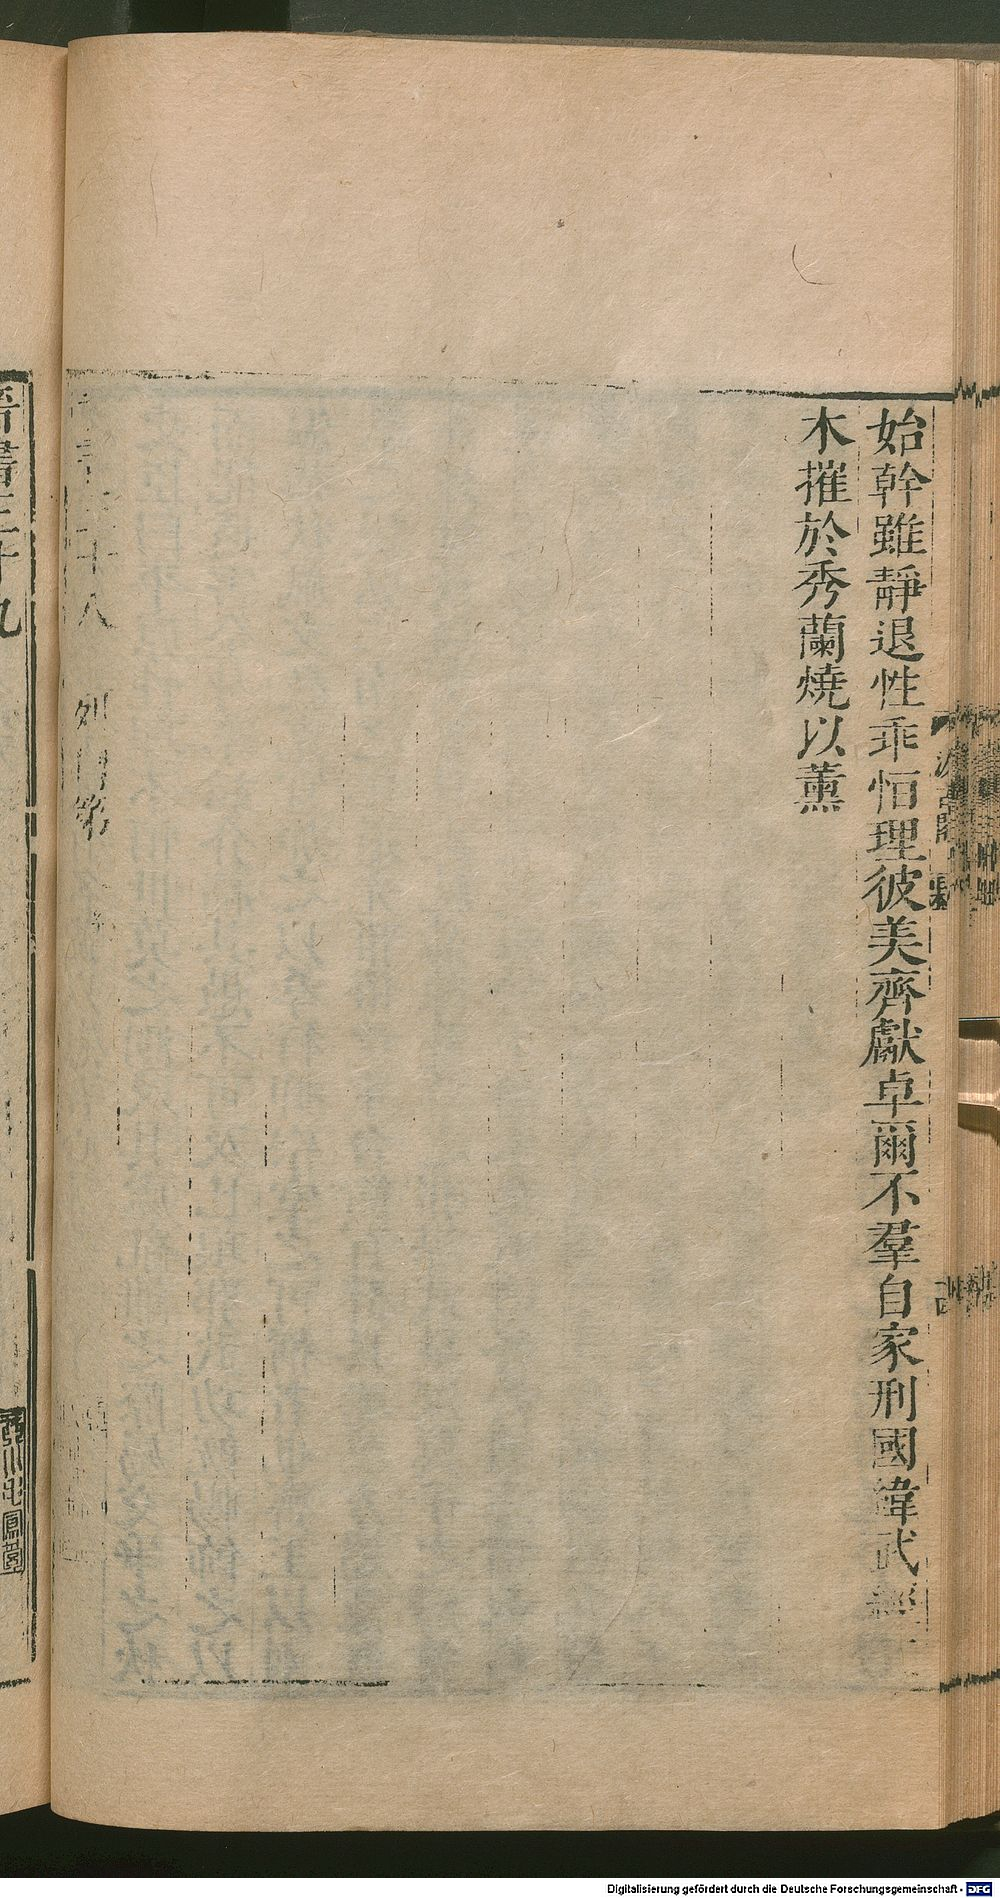 始幹雖靜退性乖恒理彼美齊獻卓爾不羣自家刑國緯武經
木摧於秀蘭燒以薰
十八 列傳第
晉書三十九
Digitalisierung gefördert durch die Deutsche Forschungsgemeinschaft - DFG